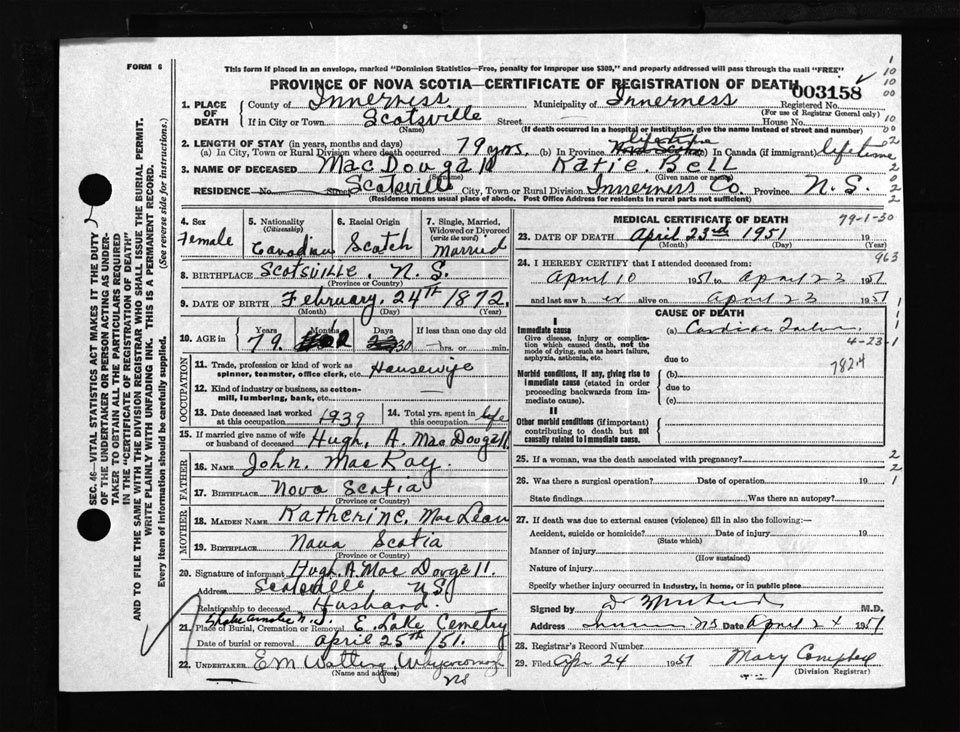 FORM 6
This form if placed in an envelope, marked "Dominion Statistics—Free, penalty for improper use $300," and properly addressed will pass through the mail "FREE"
PROVINCE OF NOVA SCOTIA—CERTIFICATE OF REGISTRATION OF DEATH
003158
1. PLACE OF DEATH
County of Inverness Municipality of Inverness Registered No.
(For use of Registrar General only)
If in City or Town Scotsville Street House No.
(Name) (If death occurred in a hospital or institution, give the name instead of street and number)
2. LENGTH OF STAY (in years, months and days)
(a) In City, Town or Rural Division where death occurred 79 yrs. (b) In Province lifetime (c) In Canada (if immigrant) lifetime
3. NAME OF DECEASED MacDougall Katie Bell
(Surname) (Given name or names)
RESIDENCE No. Street Scotsville City, Town or Rural Division Inverness Co. Province N. S.
(Residence means usual place of abode. Post Office Address for residents in rural parts not sufficient)
4. Sex
Female
5. Nationality
(Citizenship)
Canadian
6. Racial Origin
Scotch
7. Single, Married, Widowed or Divorced
(write the word)
Married
8. BIRTHPLACE Scotsville, N. S.
(Province or Country)
9. DATE OF BIRTH February, 24th 1872.
(Month) (Day) (Year)
10. AGE in
Years Months Days If less than one day old
79 30 hrs. or min.
OCCUPATION
11. Trade, profession or kind of work as
spinner, teamster, office clerk, etc. Housewife
12. Kind of industry or business, as cotton-
mill, lumbering, bank, etc.
13. Date deceased last worked
at this occupation 1939
14. Total yrs. spent in
this occupation life
15. If married give name of wife
or husband of deceased Hugh, A. MacDougall.
FATHER
16. NAME John. MacKay.
17. BIRTHPLACE Nova Scotia
(Province or Country)
MOTHER
18. MAIDEN NAME Katherine, MacLean
19. BIRTHPLACE Nova Scotia
(Province or Country)
20. Signature of informant Hugh. A. MacDougall.
Address Scotsville N.S.
Relationship to deceased Husband.
21. Place of Burial, Cremation or Removal E. Lake Cemetry
Date of burial or removal April 25th /51.
22. UNDERTAKER E M Watling, Whycocomagh
(Name and address)
NS
MEDICAL CERTIFICATE OF DEATH
79-1-30
23. DATE OF DEATH April 23rd 1951 19
(Month) (Day) (Year)
963
24. I HEREBY CERTIFY that I attended deceased from:
April 10 1951 to April 23 1951
and last saw h er alive on April 23 1951
CAUSE OF DEATH
I
Immediate cause (a) Cardiac Failure
Give disease, injury or complica-
tion which caused death, not the
mode of dying, such as heart failure,
asphyxia, asthenia, etc.
4-23-1
due to
7824
Morbid conditions, if any, giving rise to
immediate cause (stated in order
proceeding backwards from im-
mediate cause).
(b)
due to
(c)
II
Other morbid conditions (if important)
contributing to death but not
causally related to immediate cause.
25. If a woman, was the death associated with pregnancy?
26. Was there a surgical operation? Date of operation 19
State findings Was there an autopsy?
27. If death was due to external causes (violence) fill in also the following:—
Accident, suicide or homicide? Date of injury 19
(State which)
Manner of injury
(How sustained)
Nature of injury
Specify whether injury occurred in industry, in home, or in public place
Signed by M.D.
Address NS Date April 24 1951
28. Registrar's Record Number
29. Filed Apr 24 1951 Mary Campbell
(Division Registrar)
SEC. 46—VITAL STATISTICS ACT MAKES IT THE DUTY
OF THE UNDERTAKER OR PERSON ACTING AS UNDER-
TAKER TO OBTAIN ALL THE PARTICULARS REQUIRED
IN THE "CERTIFICATE OF REGISTRATION OF DEATH"
AND TO FILE THE SAME WITH THE DIVISION REGISTRAR WHO SHALL ISSUE THE BURIAL PERMIT.
WRITE PLAINLY WITH UNFADING INK. THIS IS A PERMANENT RECORD.
Every item of information should be carefully supplied. (See reverse side for instructions.)